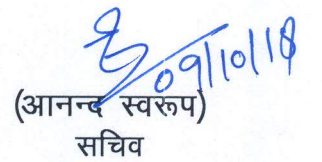 09/10/18
(आनन्द स्वरूप)
सचिव